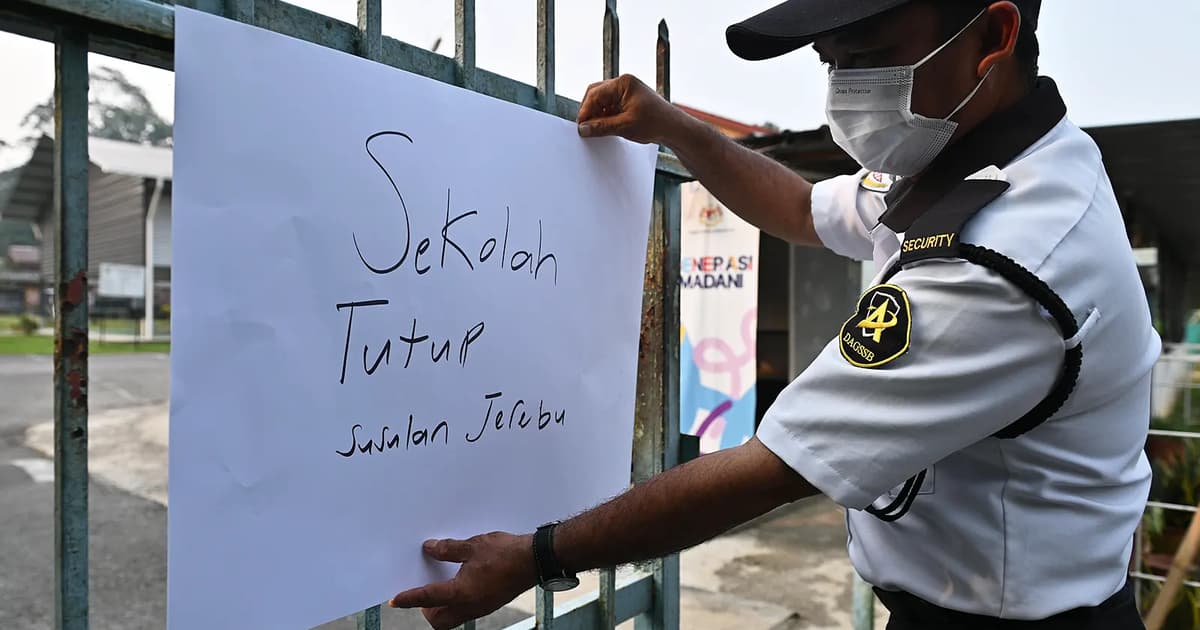 Sekolah
Tutup
susulan Jerebu
SECURITY
DAGSSB
MADANI